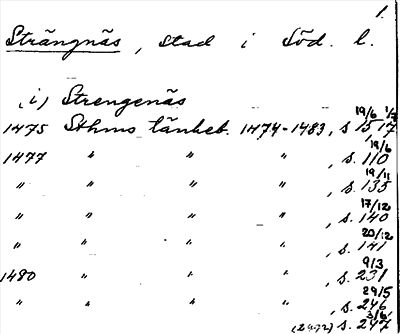 1.
Strängnäs, stad i Söd. l.
(i) Strengenäs
19/6 1/7
1475 Sthms tänkeb. 1474-1483, s. 15, 17
19/6
1477 " " " , s. 110
19/11
" " " " , s. 135
17/12
" " " " , s. 140
20/12
" " " " , s. 141
9/3
1480 " " " , s. 231
29/5
" " " " , s. 246
3/6
(2472) s. 247